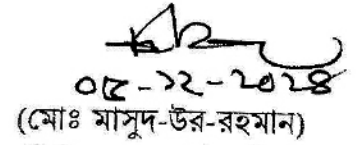 ০৫-১২-২০২৪
(মোঃ মাসুদ-উর-রহমান)